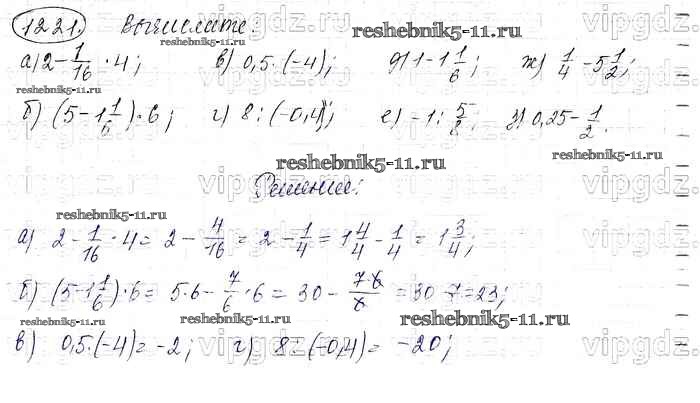 1221. Вычислите:
а) 2 - 1/16 · 4; в) 0,5 · (-4); д) 1 - 1 1/6; ж) 1/4 - 5 1/2;
б) (5 - 1 1/6) · 6; г) 8 : (-0,4); е) -1 : 5/8; з) 0,25 - 1/2.
Решение:
а) 2 - 1/16 · 4 = 2 - 4/16 = 2 - 1/4 = 1 4/4 - 1/4 = 1 3/4;
б) (5 - 1 1/6) · 6 = 5·6 - 7/6 · 6 = 30 - 7·6/6 = 30 - 7 = 23;
в) 0,5 · (-4) = -2; г) 8 : (-0,4) = -20;
reshebnik5-11.ru
vipgdz.ru